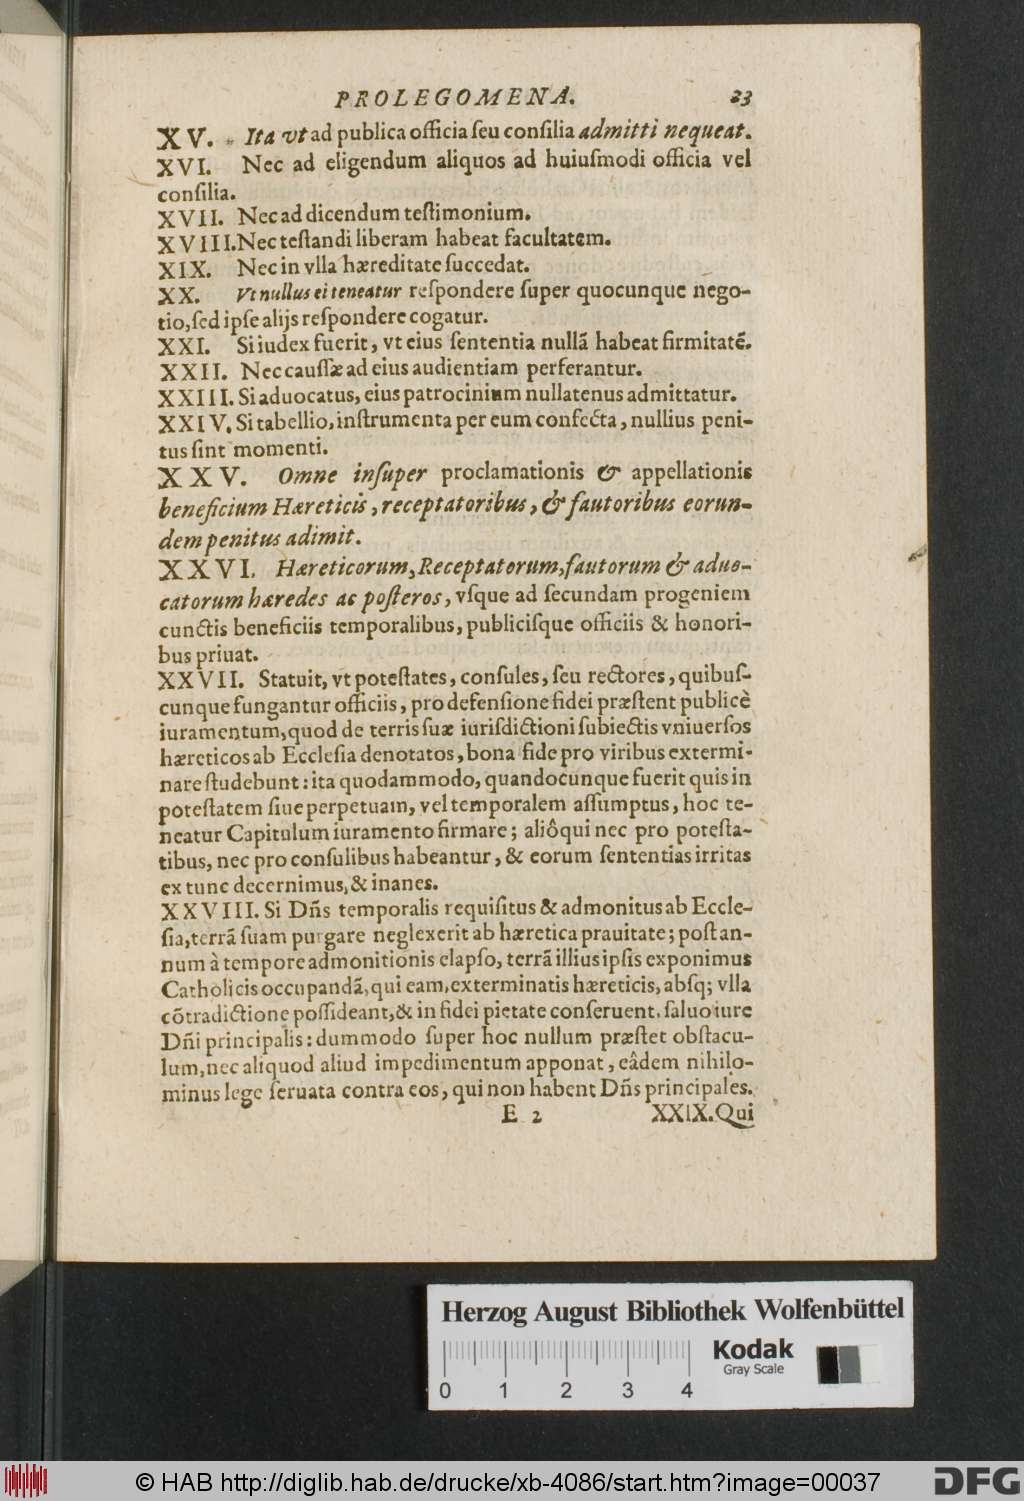 PROLEGOMENA. 23
XV. Ita vt ad publica officia ſeu conſilia admitti nequeat.
XVI. Nec ad eligendum aliquos ad huiuſmodi officia vel
conſilia.
XVII. Nec ad dicendum teſtimonium.
XVIII. Nec teſtandi liberam habeat facultatem.
XIX. Nec in vlla hæreditate ſuccedat.
XX. Vt nullus ei teneatur reſpondere ſuper quocunque nego-
tio, ſed ipſe alijs reſpondere cogatur.
XXI. Si iudex fuerit, vt eius ſententia nullã habeat firmitatẽ.
XXII. Nec cauſſæ ad eius audientiam perferantur.
XXIII. Si aduocatus, eius patrocinium nullatenus admittatur.
XXIV. Si tabellio, inſtrumenta per eum confecta, nullius peni-
tus ſint momenti.
XXV. Omne inſuper proclamationis & appellationis
beneficium Hæreticis, receptatoribus, & fautoribus eorun-
dem penitus adimit.
XXVI. Hæreticorum, Receptatorum, fautorum & aduo-
catorum hæredes ac poſteros, vſque ad ſecundam progeniem
cunctis beneficiis temporalibus, publiciſque officiis & honori-
bus priuat.
XXVII. Statuit, vt poteſtates, conſules, ſeu rectores, quibuſ-
cunque fungantur officiis, pro defenſione fidei præſtent publicè
iuramentum, quod de terris ſuæ iuriſdictioni ſubiectis vniuerſos
hæreticos ab Eccleſia denotatos, bona fide pro viribus extermi-
nare ſtudebunt: ita quodammodo, quandocunque fuerit quis in
poteſtatem ſiue perpetuam, vel temporalem aſſumptus, hoc te-
neatur Capitulum iuramento firmare; aliôqui nec pro poteſta-
tibus, nec pro conſulibus habeantur, & eorum ſententias irritas
ex tunc decernimus, & inanes.
XXVIII. Si Dñs temporalis requiſitus & admonitus ab Eccle-
ſia, terrã ſuam purgare neglexerit ab hæretica prauitate; poſt an-
num à tempore admonitionis elapſo, terrã illius ipſis exponimus
Catholicis occupandã, qui eam, exterminatis hæreticis, abſq; vlla
cõtradictione poſſideant, & in fidei pietate conſeruent, ſaluo iure
Dñi principalis: dummodo ſuper hoc nullum præſtet obſtacu-
lum, nec aliquod aliud impedimentum apponat, eâdem nihilo-
minus lege ſeruata contra eos, qui non habent Dñs principales.
E 2 XXIX. Qui
Herzog August Bibliothek Wolfenbüttel
Kodak
Gray Scale
0 1 2 3 4
© HAB http://diglib.hab.de/drucke/xb-4086/start.htm?image=00037
DFG